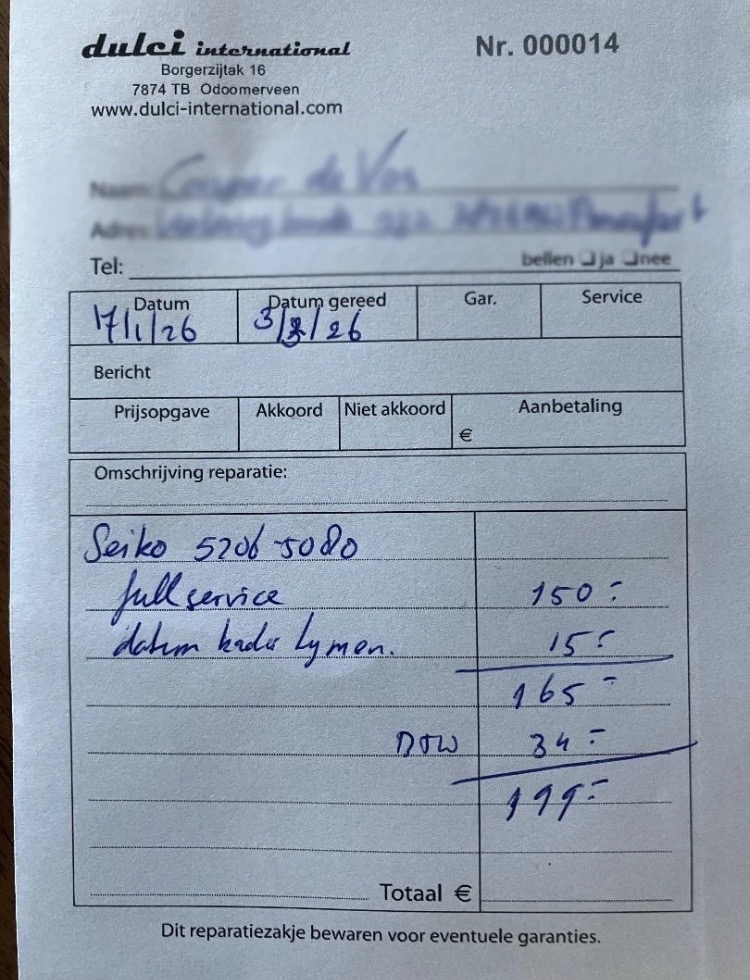 dulci international
Nr. 000014
Borgerzijtak 16
7874 TB Odoomerveen
www.dulci-international.com
Naam:
Adres:
Tel:
bellen ❏ja ❏nee
Datum Datum gereed Gar. Service
17/1/26 3/2/26
Bericht
Prijsopgave Akkoord Niet akkoord Aanbetaling
€
Omschrijving reparatie:
Seiko 5206 5080
full service 150:-
datum kader lijmen. 15:-
165-
BTW 34:-
199:-
Totaal €
Dit reparatiezakje bewaren voor eventuele garanties.